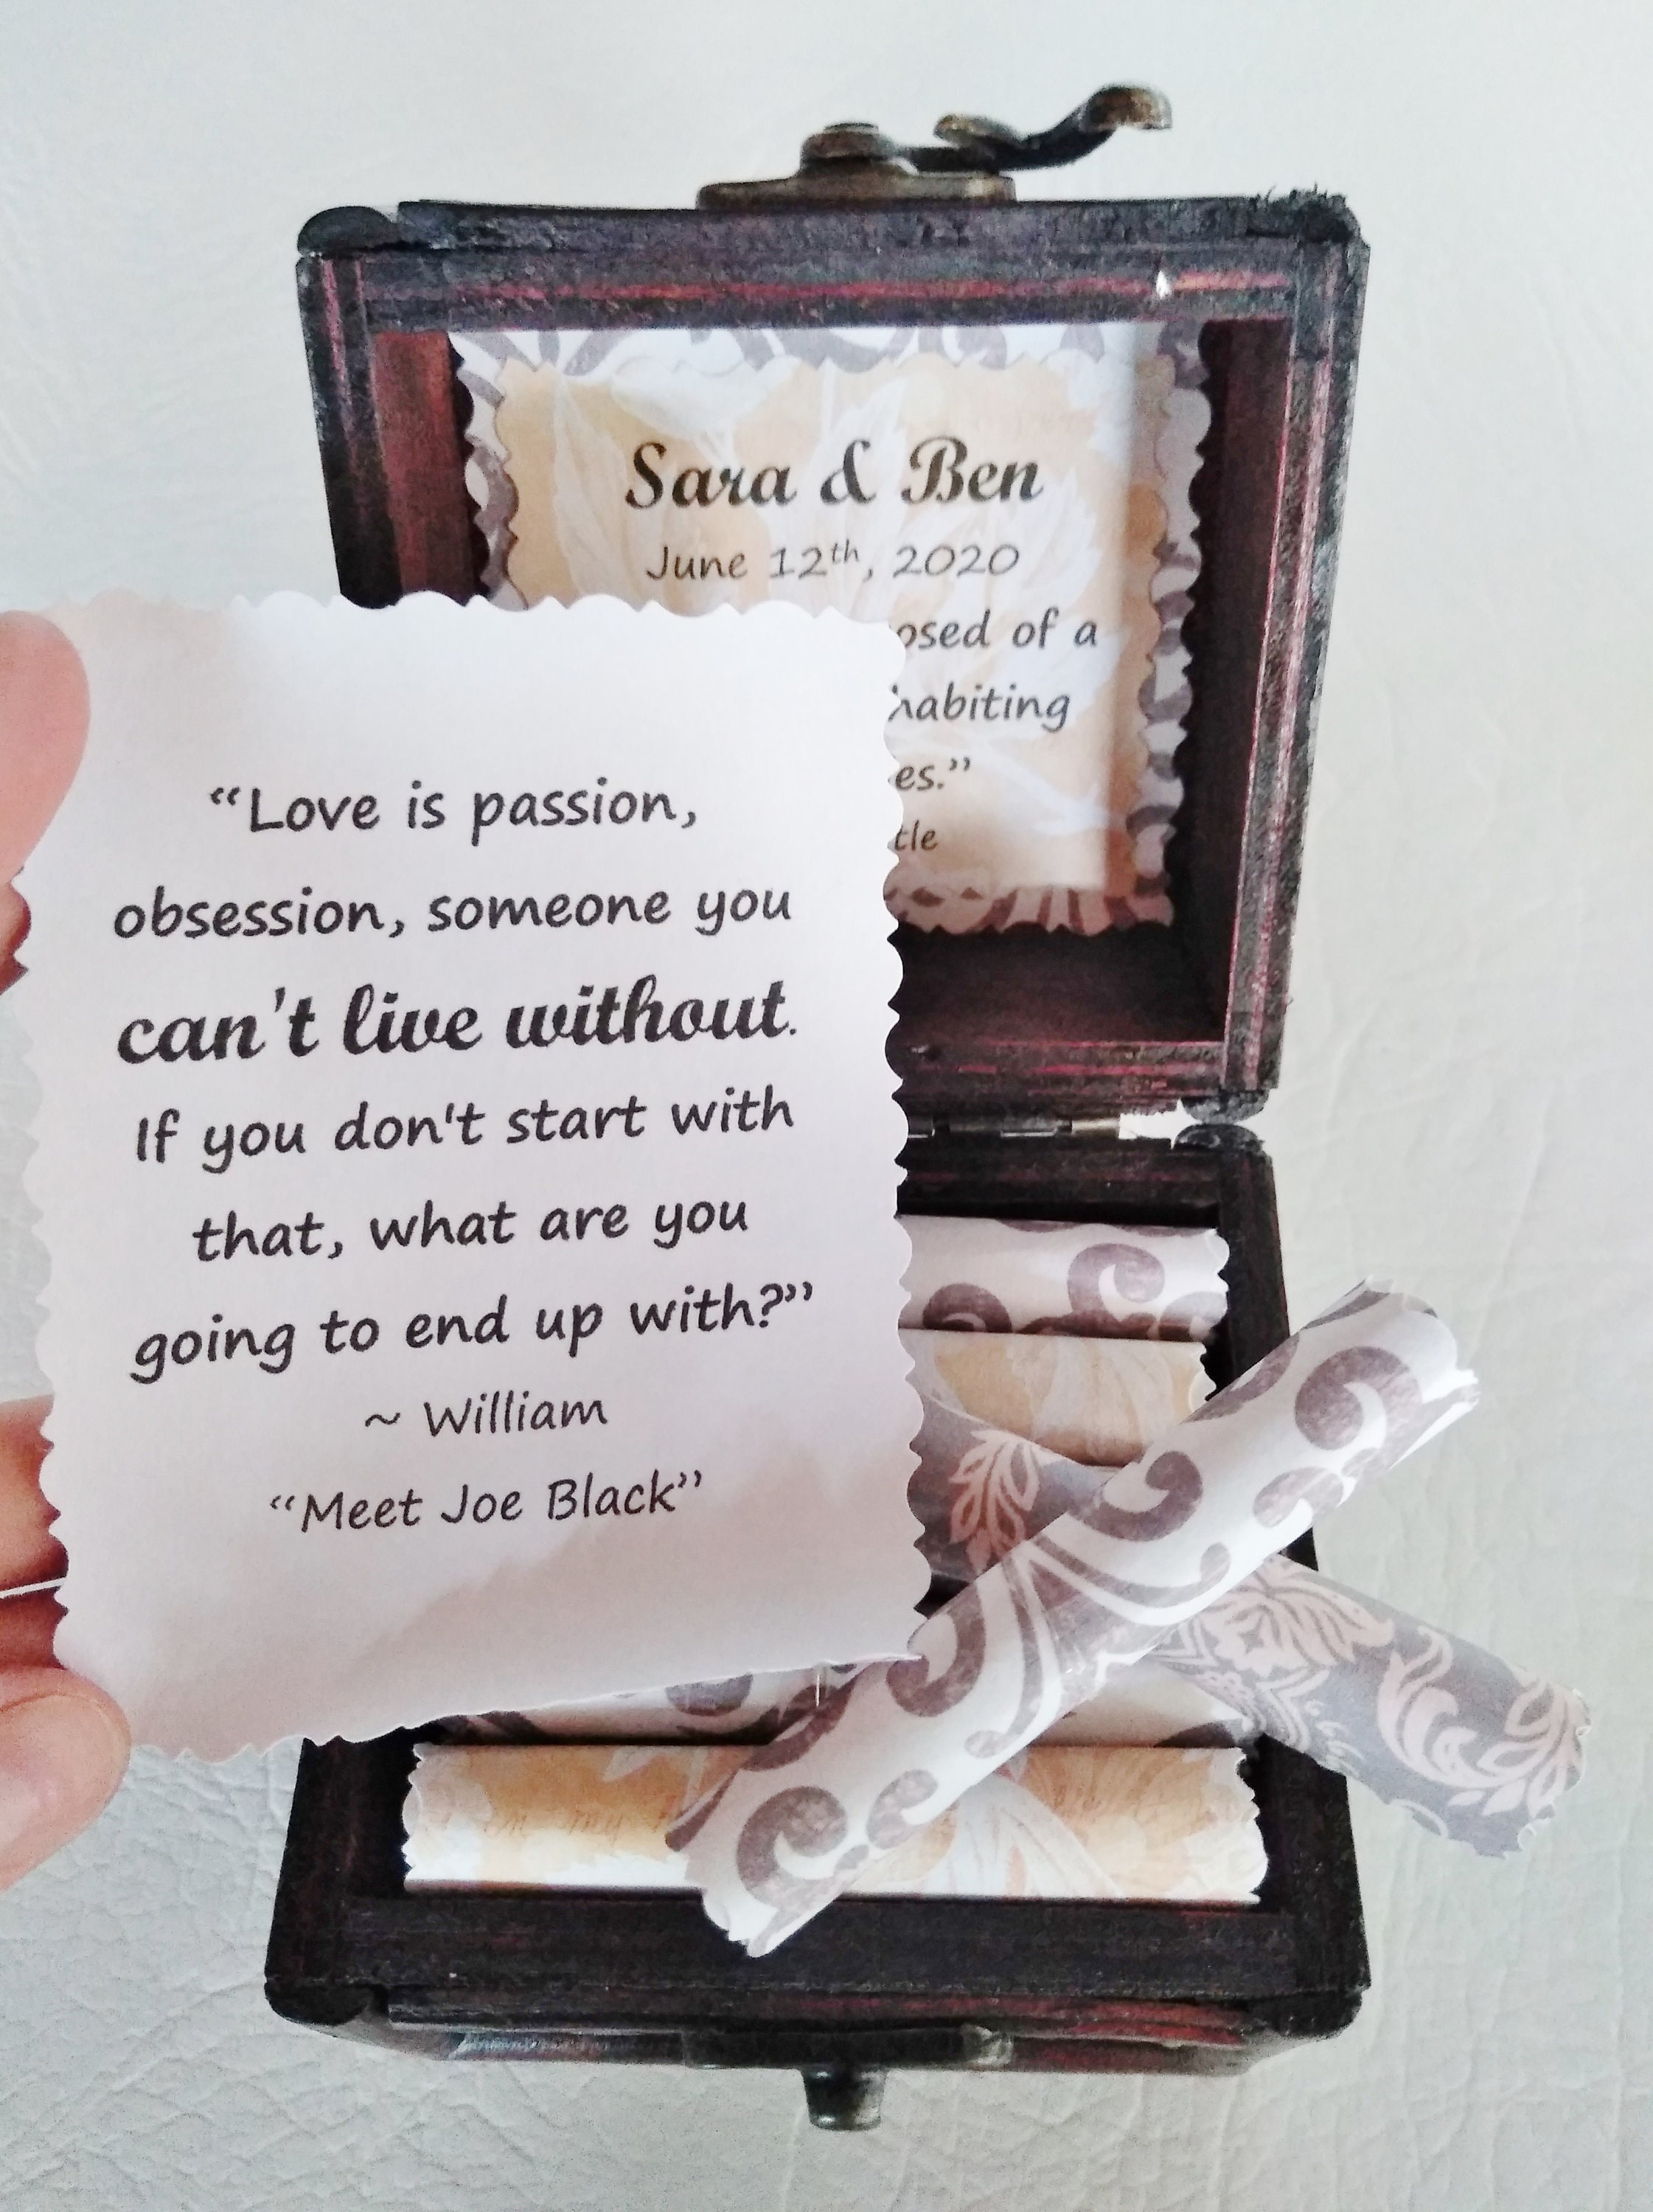 Sara & Ben
June 12th, 2020
of a
“Love is passion,
obsession, someone you
can't live without.
If you don't start with
that, what are you
going to end up with?”
~ William
“Meet Joe Black”